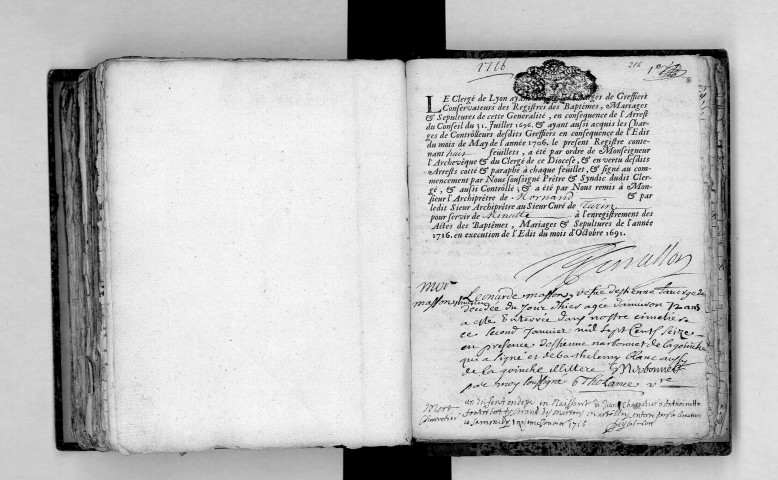 1716
216
1er
LE Clergé de Lyon ayant Charges de Greffiers
Conservateurs des Registres des Baptêmes, Mariages
& Sepultures de cette Generalité, en consequence de l'Arrest
du Conseil du 31. Juillet 1696. & ayant aussi acquis les Char-
ges de Controlleurs desdits Greffiers en consequence de l'Edit
du mois de May de l'année 1706. le present Registre conte-
nant huit feuillets, a été par ordre de Monseigneur
l'Archevêque & du Clergé de ce Diocese, & en vertu desdits
Arrests cotté & paraphé à chaque feuillet, & signé au com-
mencement par Nous soussigné Prêtre & Syndic dudit Cler-
gé, & aussi Controllé; & a été par Nous remis à Mon-
sieur l'Archiprêtre de Mornand & par
ledit Sieur Archiprêtre au Sieur Curé de Turin
pour servir de Minutte à l'enregistrement des
Actes des Baptêmes, Mariages & Sepultures de l'année
1716. en execution de l'Edit du mois d'Octobre 1691.
Mor
masson
Leonarde masson vefve destienne
decedée du jour d'hier agée d'environ ans
a esté Enterrée dans nostre cimetiere
ce second Janvier mil sept Cents seize
en presence destienne narbonnet de la goinche
qui a signé et de barthelemy blanc aussy
de la goinche illitere G Narbonnet
par moy soussigné
Mort
un enfant en naissant de Jean et Antoinette
enterré
1716